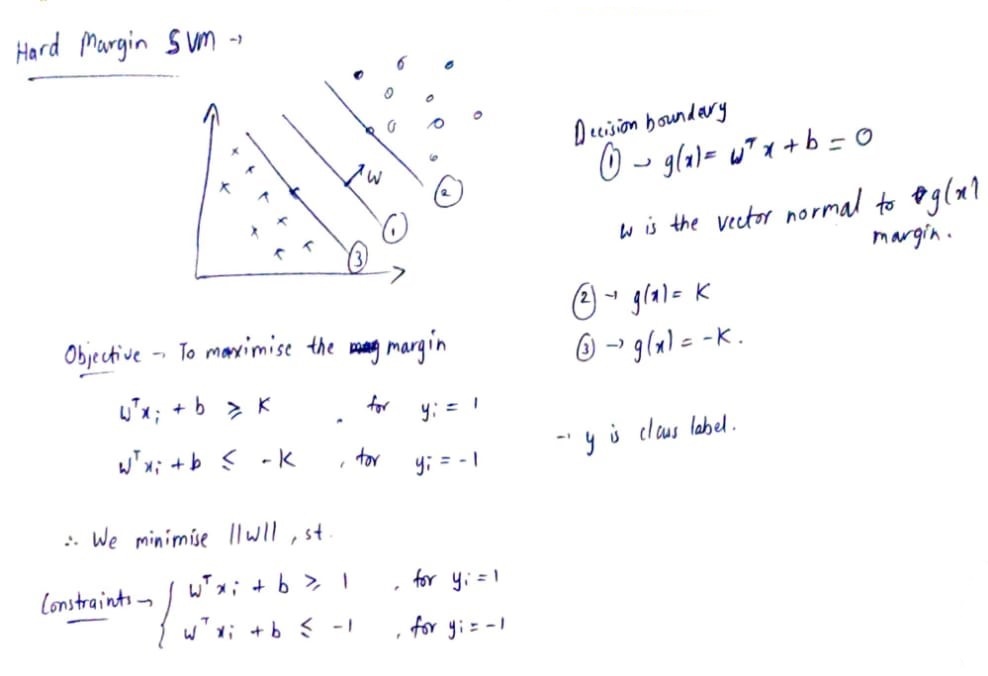 Hard Margin SVM →
w
②
①
③
Decision boundary
① → g(x) = wᵀx + b = 0
w is the vector normal to g(x)
margin.
② → g(x) = K
③ → g(x) = -K.
Objective → To maximise the margin
wᵀxᵢ + b ≥ K , for yᵢ = 1
wᵀxᵢ + b ≤ -K , for yᵢ = -1
→ y is class label.
∴ We minimise ||w|| , st.
Constraints → { wᵀxᵢ + b ≥ 1 , for yᵢ = 1
wᵀxᵢ + b ≤ -1 , for yᵢ = -1